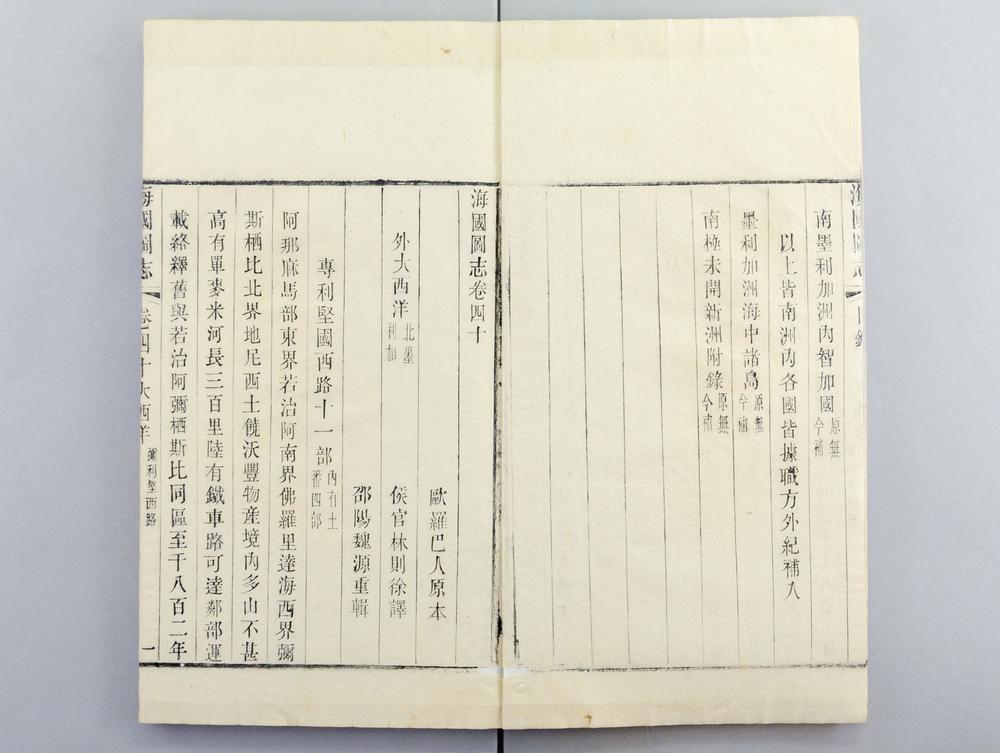 海國圖志 目錄
南墨利加洲內智加國原無今補
以上皆南洲內各國皆據職方外紀補入
墨利加洲海中諸島原無今補
南極未開新洲附錄原無今補
海國圖志卷四十
歐羅巴人原本
外大西洋北墨利加
侯官林則徐譯
邵陽魏源重輯
專利堅國西路十一部內有土番四部
阿那麻馬部東界若治阿南界佛羅里達海西界彌
斯栖比北界地尼西土饒沃豐物產境內多山不甚
高有單麥米河長三百里陸有鐵車路可達鄰部運
載絡繹舊與若治阿彌栖斯比同區至千八百二年
海國圖志 卷四十大西洋 彌利堅西路 一